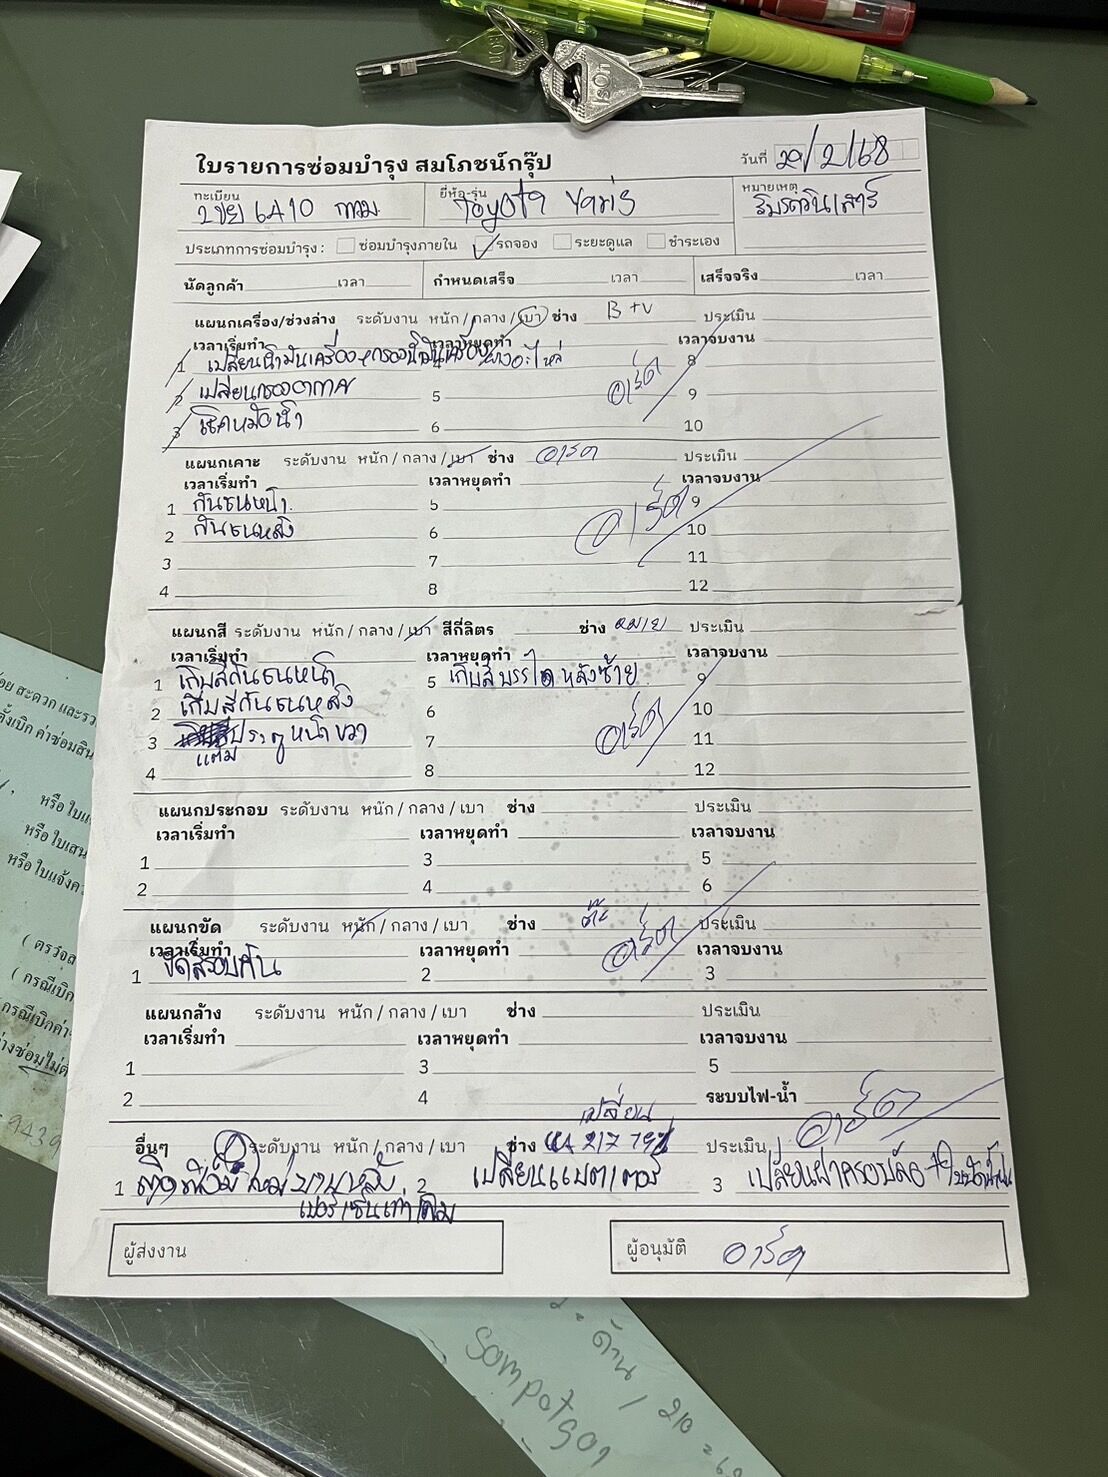 ใบรายการซ่อมบำรุง สมโภชน์กรุ๊ป
วันที่ 20/2/68
ทะเบียน 6A10 กทม
ยี่ห้อ-รุ่น Toyota Yaris
หมายเหตุ รับรถวันเสาร์
ประเภทการซ่อมบำรุง : ซ่อมบำรุงภายใน รถจอง ระยะดูแล ชำระเอง
นัดลูกค้า เวลา กำหนดเสร็จ เวลา เสร็จจริง เวลา
แผนกเครื่อง/ช่วงล่าง ระดับงาน หนัก / กลาง / เบา ช่าง B+V ประเมิน
เวลาเริ่มทำ เวลาหยุดทำ เวลาจบงาน
1 เปลี่ยนน้ำมันเครื่อง+กรองน้ำมันเครื่อง 8
2 เปลี่ยนกรองอากาศ 5 อาร์ต 9
3 เช็คหม้อน้ำ 6 10
แผนกเคาะ ระดับงาน หนัก / กลาง / เบา ช่าง อาร์ต ประเมิน
เวลาเริ่มทำ เวลาหยุดทำ เวลาจบงาน
1 กันชนหน้า 5 อาร์ต 9
2 กันชนหลัง 6 10
3 7 11
4 8 12
แผนกสี ระดับงาน หนัก / กลาง / เบา สีกี่ลิตร ช่าง ประเมิน
เวลาเริ่มทำ เวลาหยุดทำ เวลาจบงาน
1 เก็บสีกันชนหน้า 5 เก็บสีบรรไดหลังซ้าย 9
2 เก็บสีกันชนหลัง 6 10
3 แต้มประตูหน้าขวา 7 อาร์ต 11
4 8 12
แผนกประกอบ ระดับงาน หนัก / กลาง / เบา ช่าง ประเมิน
เวลาเริ่มทำ เวลาหยุดทำ เวลาจบงาน
1 3 5
2 4 6
แผนกขัด ระดับงาน หนัก / กลาง / เบา ช่าง ประเมิน
เวลาเริ่มทำ เวลาหยุดทำ อาร์ต เวลาจบงาน
1 ขัดสีรอบคัน 2 3
แผนกล้าง ระดับงาน หนัก / กลาง / เบา ช่าง ประเมิน
เวลาเริ่มทำ เวลาหยุดทำ เวลาจบงาน
1 3 5
2 4 ระบบไฟ-น้ำ
เปลี่ยน
อื่นๆ ระดับงาน หนัก / กลาง / เบา ช่าง ประเมิน อาร์ต
1 บานหลัง 2 เปลี่ยนแบตเตอรี่ 3 เปลี่ยนฝาครอบล้อ +ใบปัดน้ำฝน
เปอร์เซ็นเท่าเดิม
ผู้ส่งงาน ผู้อนุมัติ อาร์ต
sompotgo1